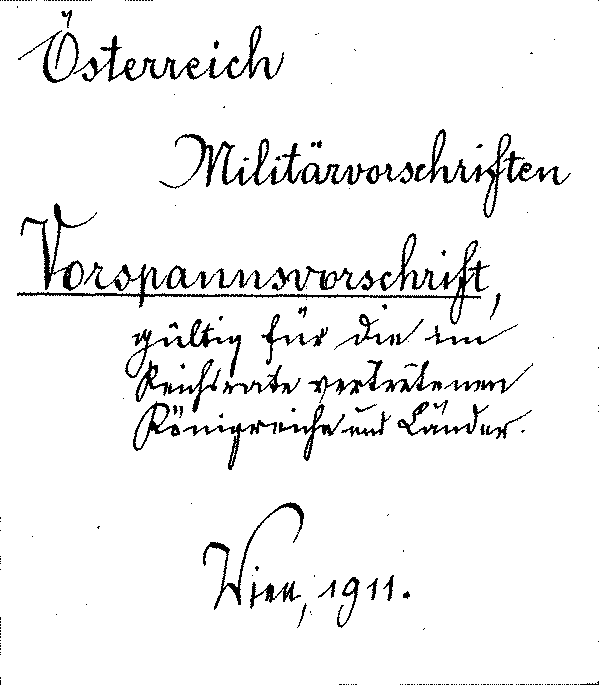 Österreich
Militärvorschriften
Vorspannsvorschrift,
gültig für die im
Reichsrate vertretenen
Königreiche und Länder.
Wien, 1911.